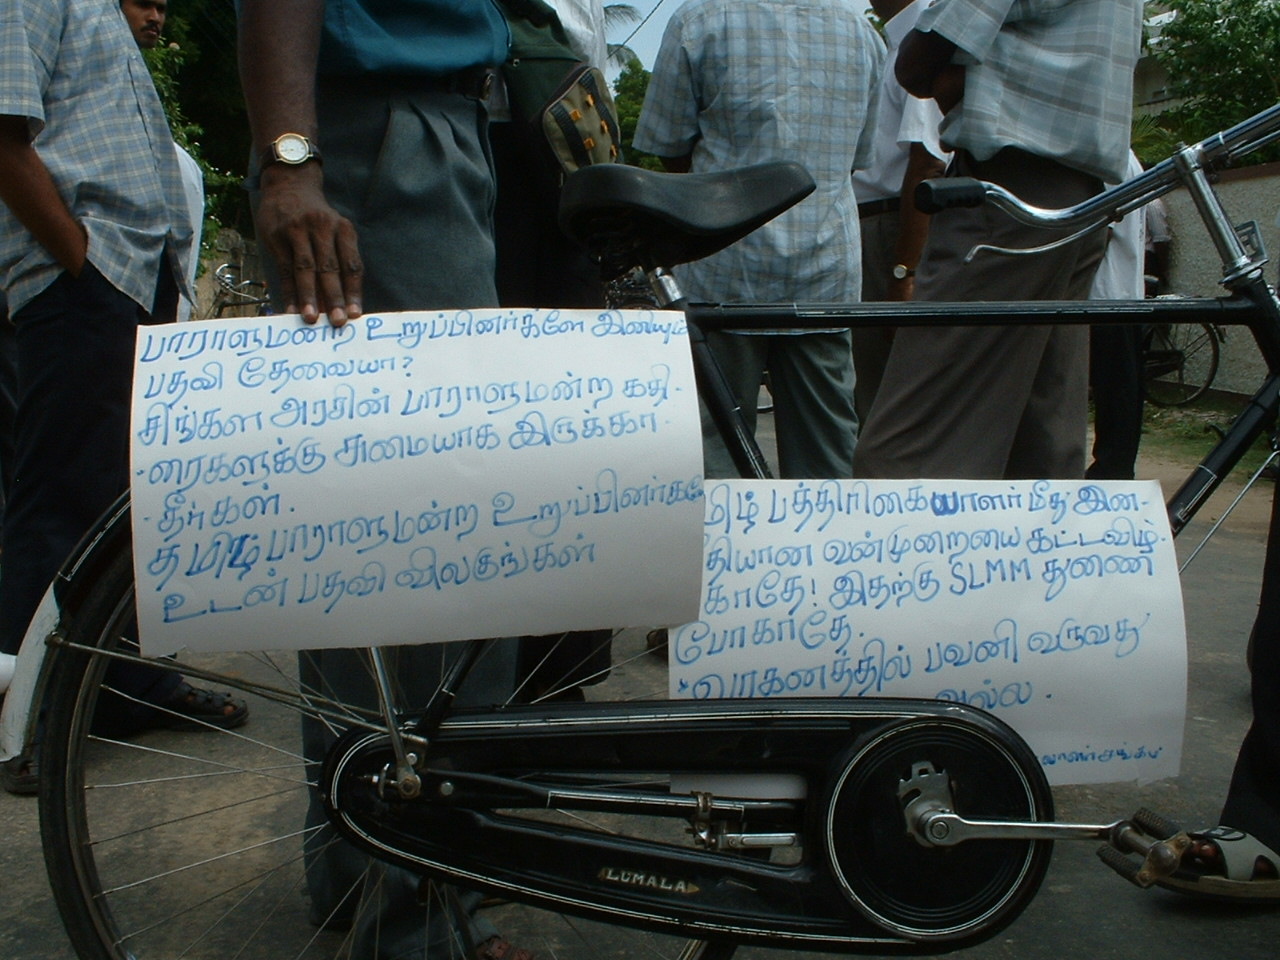 பாராளுமன்ற உறுப்பினர்களே இனியும்
பதவி தேவையா?
சிங்கள அரசின் பாராளுமன்ற கதி-
-ரைகளுக்கு சுமையாக இருக்கா-
-தீர்கள்.
தமிழ் பாராளுமன்ற உறுப்பினர்களே
உடன் பதவி விலகுங்கள்
மிழ் பத்திரிகையாளர் மீது இன-
தியான வன்முறையை கட்டவிழ்-
காதே! இதற்கு SLMM துணை
போகாதே.
வாகனத்தில் பவனி வருவது
அல்ல.
லாளர் சங்கம்
LUMALA